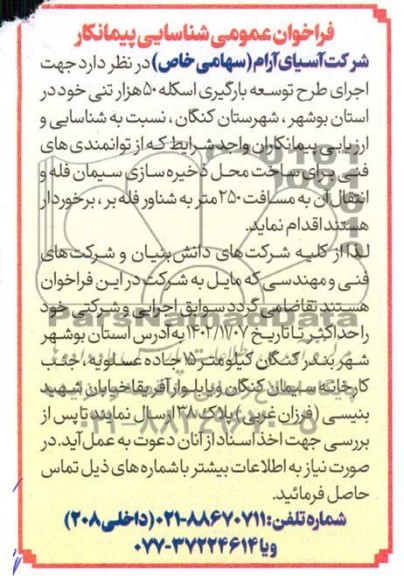 فراخوان عمومی شناسایی پیمانکار
شرکت آسیای آرام (سهامی خاص) در نظر دارد جهت
اجرای طرح توسعه بارگیری اسکله ۵۰ هزار تنی خود در
استان بوشهر، شهرستان کنگان، نسبت به شناسایی و
ارزیابی پیمانکاران واجد شرایط که از توانمندی های
فنی برای ساخت محل ذخیره سازی سیمان فله و
انتقال آن به مسافت ۲۵۰ متر به شناور فله بر، برخوردار
هستند اقدام نماید.
لذا از کلیه شرکت های دانش بنیان و شرکت های
فنی و مهندسی که مایل به شرکت در این فراخوان
هستند تقاضا می گردد سوابق اجرایی و شرکتی خود
را حداکثر تا تاریخ ۱۴۰۲/۱۱/۰۷ به آدرس استان بوشهر
شهر بندر کنگان کیلومتر ۱۵ جاده عسلویه، جنب
کارخانه سیمان کنگان و یا بلوار آفریقا خیابان شهید
بنیسی (فرزان غربی) پلاک ۳۸ ارسال نمایند تا پس از
بررسی جهت اخذ اسناد از آنان دعوت به عمل آید. در
صورت نیاز به اطلاعات بیشتر با شماره های ذیل تماس
حاصل فرمائید.
شماره تلفن: ۸۸۶۷۰۷۱۱-۰۲۱ (داخلی ۲۰۸)
و یا ۳۷۲۲۴۶۱۴-۰۷۷
ParsNamadData